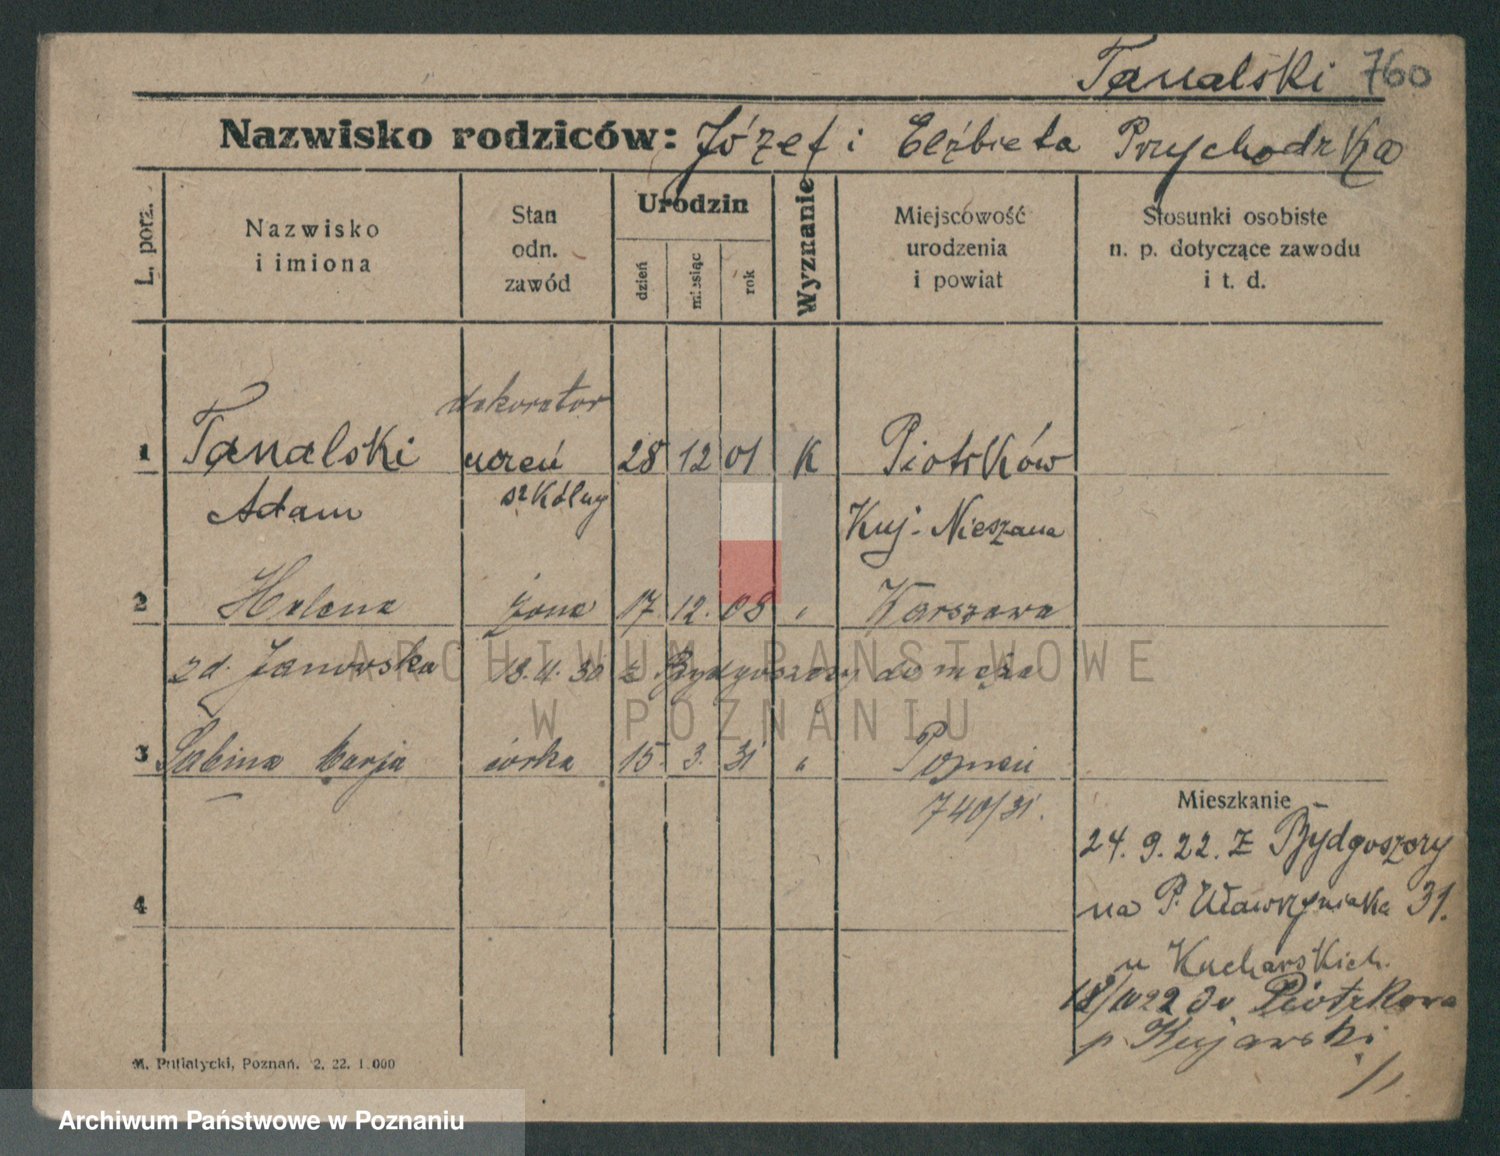 Tanalski 760
Nazwisko rodziców: Józef i Elżbieta Przychodzka
L. porz.
Nazwisko
i imiona
Stan
odn.
zawód
Urodzin
dzień
miesiąc
rok
Wyznanie
Miejscowość
urodzenia
i powiat
Stosunki osobiste
n. p. dotyczące zawodu
i t. d.
dekorator
1 Tanalski uczeń 28 12 01 K Piotrków
Adam szkólny Kuj. Nieszawa
2 Helena żona 17. 12. 08 " Warszawa
zd. Janowska 13. 11. 30 z Bydgoszczy do męża
3 Sabina Marja córka 15 3. 31 " Poznań
740/31.
Mieszkanie
24. 9. 22. z Bydgoszczy
4
na P. Wawrzyniaka 31.
u Kucharskich.
do Piotrkowa
p. Kujawski
M. Putiatycki, Poznań. 2. 22. 1.000
ARCHIWUM PAŃSTWOWE
W POZNANIU
Archiwum Państwowe w Poznaniu